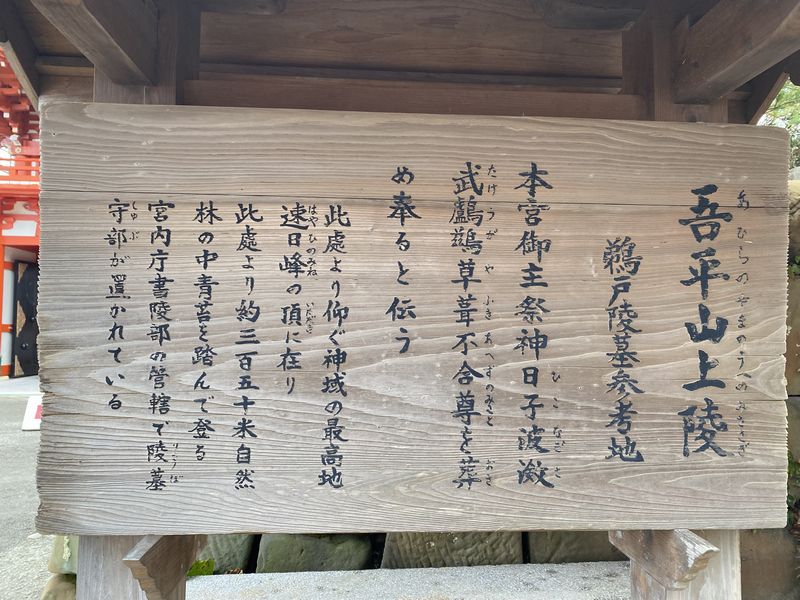 吾平山上陵
あひらのやまのうへのみささぎ
鵜戸陵墓参考地
本宮御主祭神日子波瀲
ひこなぎと
武鸕鷀草葺不合尊を葬
たけうがやふきあへずのみこと
め奉ると伝う
此處より仰ぐ神域の最高地
速日峰の頂に在り
はやひのみね いただき
此處より約三百五十米自然
林の中青苔を踏んで登る
宮内庁書陵部の管轄で陵墓
りょうぼ
守部が置かれている
しゅぶ